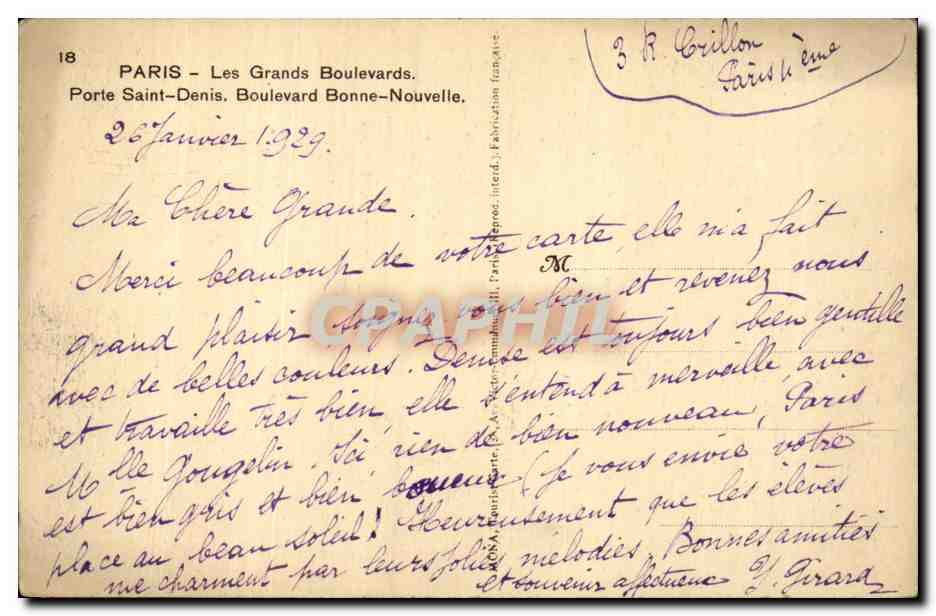 18
PARIS - Les Grands Boulevards.
Porte Saint-Denis. Boulevard Bonne-Nouvelle.
3 R. Crillon
Paris
26 Janvier 1929.
Ma Chère Grande.
Merci beaucoup de votre carte, elle m'a fait
M
grand plaisir soignez vous bien et revenez nous
avec de belles couleurs. Denise est toujours bien gentille
et travaille très bien, elle s'entend à merveille avec
Mlle Gougelin. Ici rien de bien nouveau, Paris
est bien gris et bien boueux (Je vous envie votre
place au beau soleil! Heureusement que les élèves
me charment par leurs jolies mélodies. Bonnes amitiés
et souvenir affectueux Y. Girard
CPAPHIL
Reprod. interd.). Fabrication française.